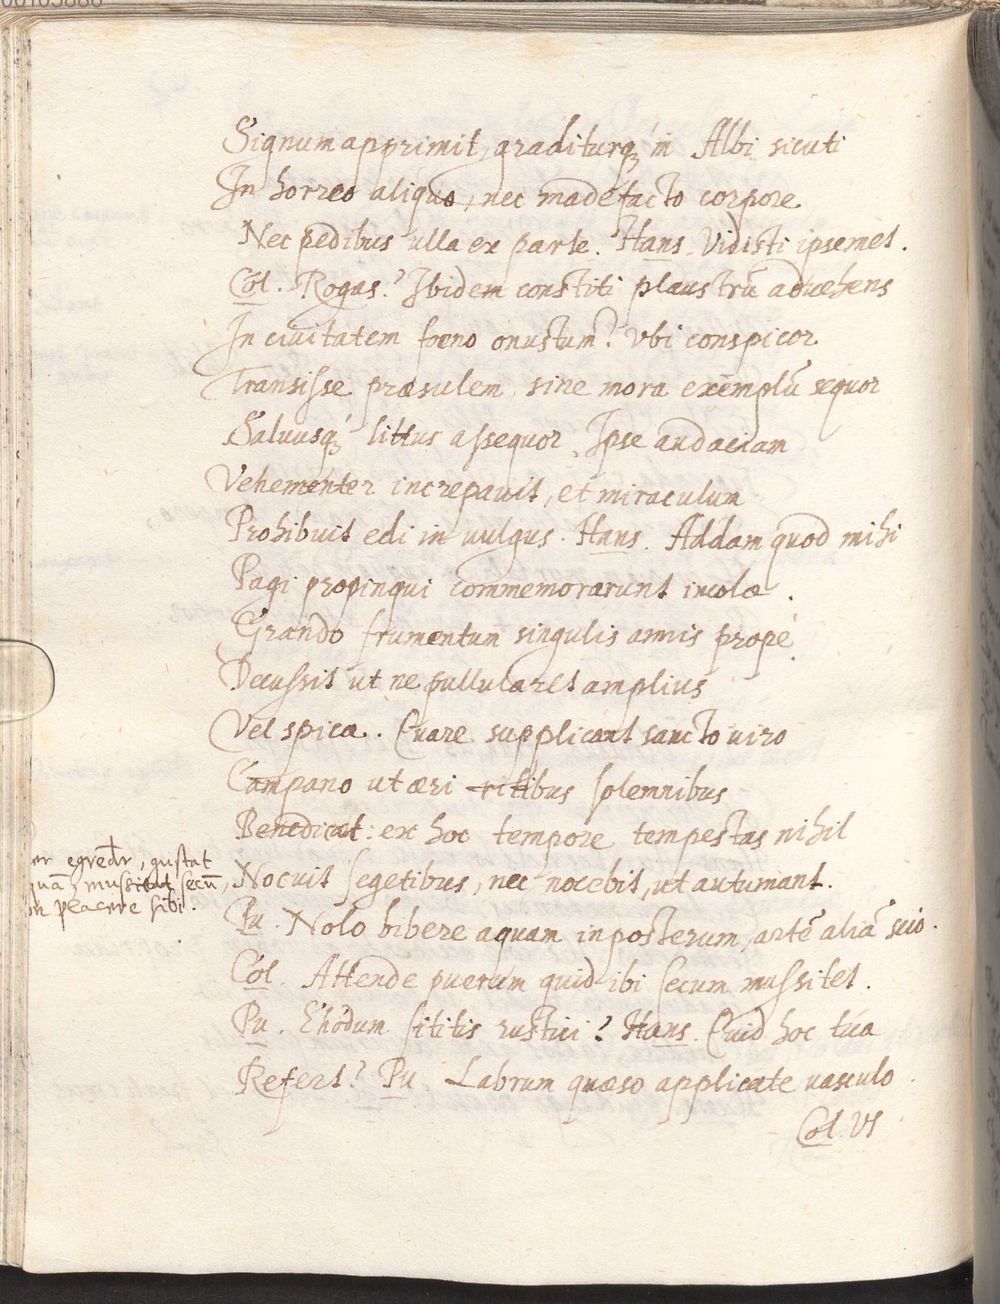 00105886
Signum apprimit, graditurq́ in Albi sicuti
In horreo aliquo, nec madefacto corpore
Nec pedibus ulla ex parte. Hans. Vidisti ipsemet.
Col. Rogas? Ibidem constiti plaustrū aduehens
In ciuitatem foeno onustum? Vbi conspicor
Transisse præsulem, sine mora exemplū sequor
Saluusq́ littus assequor. Ipse audaciam
Vehementer increpauit, et miraculum
Prohibuit edi in uulgus. Hans. Addam quod mihi
Pagi propinqui commemorarunt incolæ.
Grando frumentum singulis annis propè
Decussit ut ne pullularet amplius
Vel spica. Quare supplicant sancto uiro
Campano ut æri ritibus solemnibus
Benedicat: ex hoc tempore tempestas nihil
Nocuit segetibus, nec nocebit, ut autumant.
er egredr, gustat
quā, mussitat secū,
on placere sibi.
Pu. Nolo bibere aquam in posterum, artē aliā scio.
Col. Attende puerum quid ibi secum mussitet.
Pu. Ehodum sititis rustici? Hans. Quid hoc tua
Refert? Pu. Labrum quæso applicate uasculo.
Col. Vt